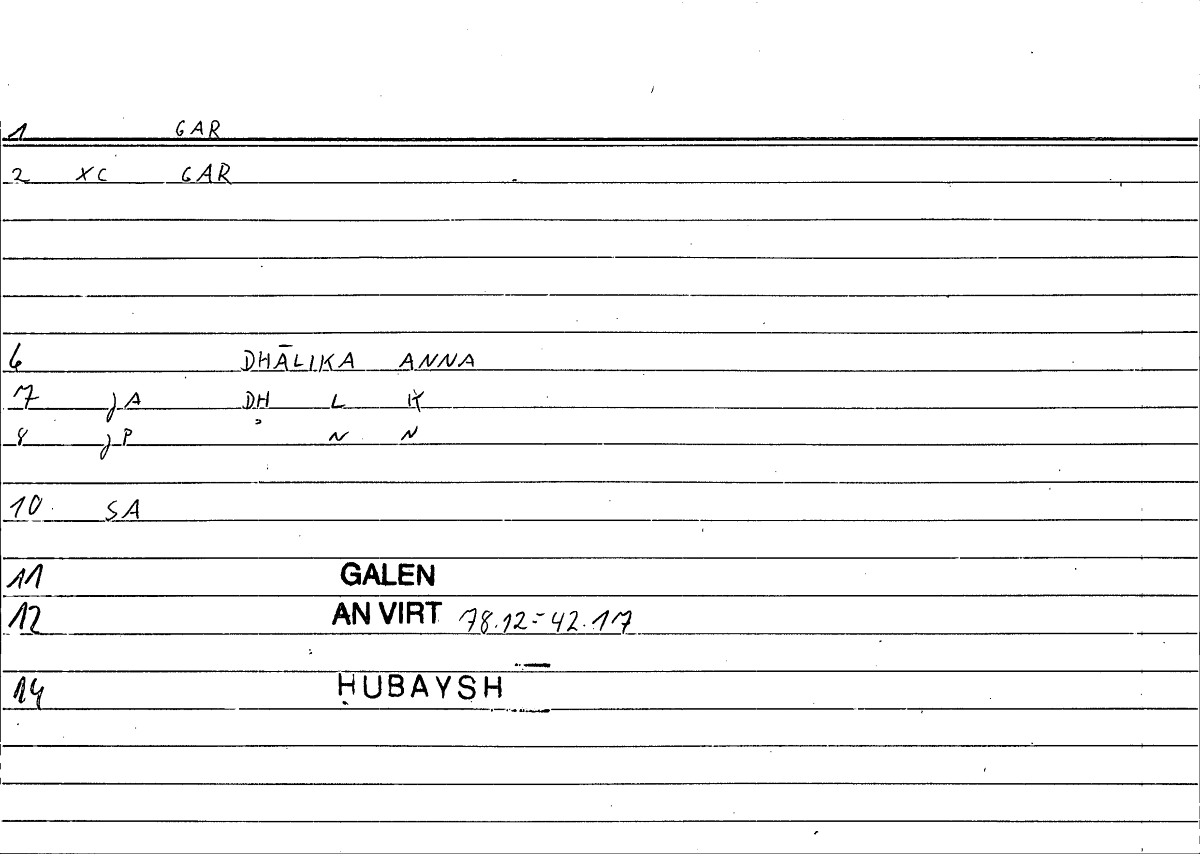 1 GAR
2 XC GAR
6 DHĀLIKA ANNA
7 jA DH L K
8 jP ʾ N N
10 SA
11 GALEN
12 AN VIRT 78.12=42.17
14 ḤUBAYSH